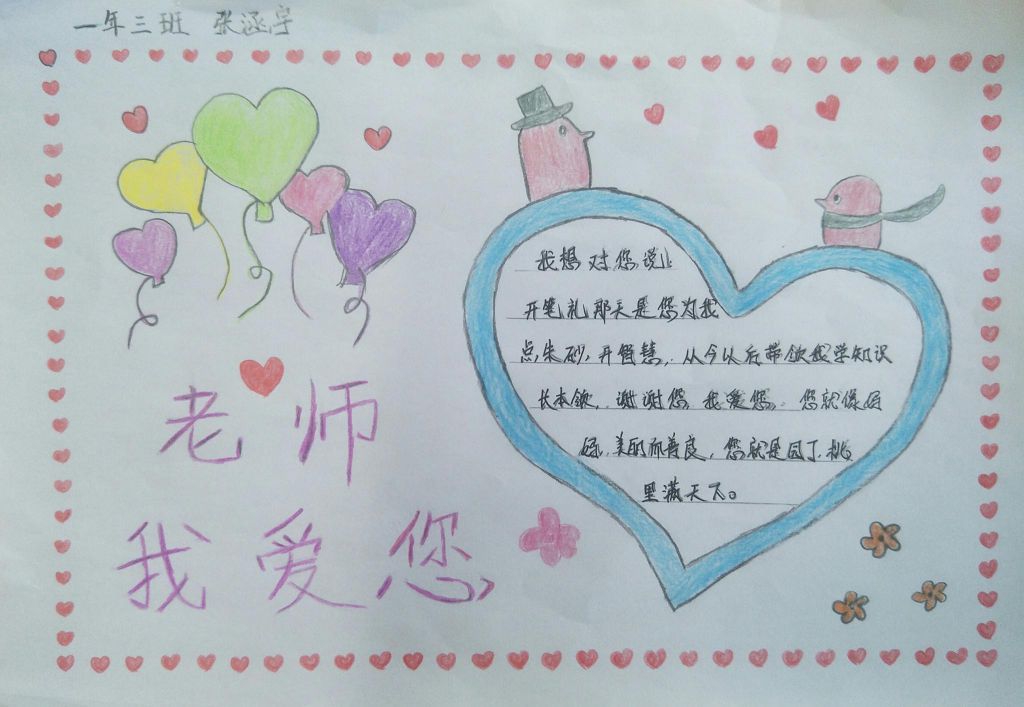 一年三班 张涵宇
老师
我爱您
我想对您说:
开笔礼那天是您为我
点朱砂,开智慧,从今以后带领我学知识
长本领,谢谢您,我爱您。您就像妈
妈,美丽而善良,您就是园丁,桃
里满天下。